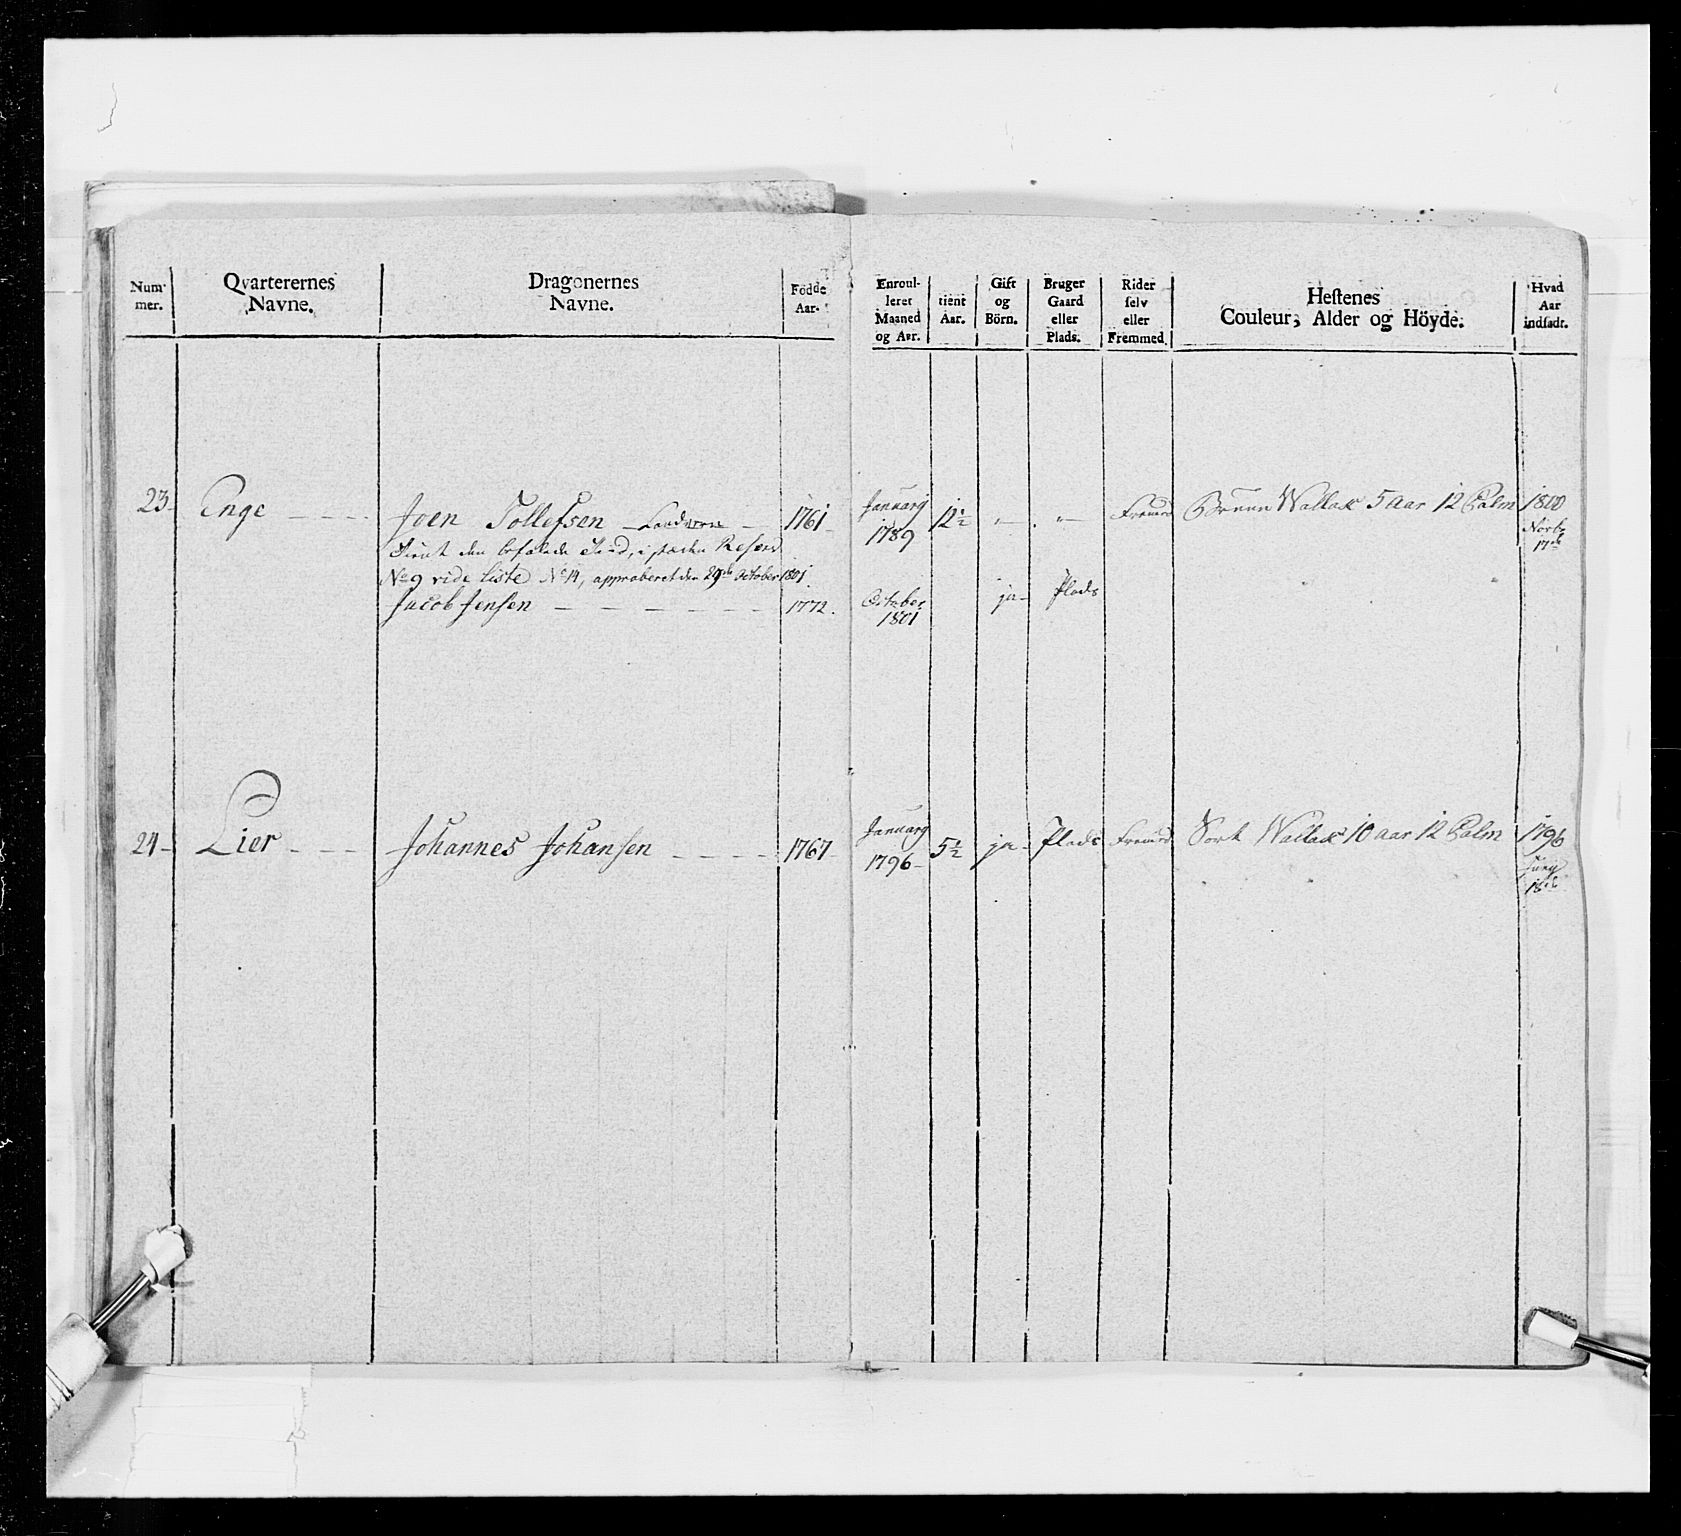 Num-
mer.
Qvarterernes
Navne.
Dragonernes
Navne.
Födde
Aar.
Enroul-
leret
Maaned
og Aar.
tient
Aar.
Gift
og
Börn.
Bruger
Gaard
eller
Plads.
Rider
selv
eller
Fremmed.
Hestenes
Couleur, Alder og Höyde.
Hvad
Aar
indsadt.
23 Enge Joen Tollefsen Landværn 1761 Januarij 12½ " " Fremed Bruun Wallak 5 aar 12 Palm 1800
1789 Novbr
17de
Tient den befalede Tiid, i stæden Reserv
No 9 vide Liste No 14, approberet den 29de October 1801.
Jacob Jensen 1772. October ja Plads
1801
24 Lier Johannes Johansen 1767 Januarij 5½ ja Plads Fremed Sort Wallak 10 aar 12 Palm 1796
1796 Junij
18de